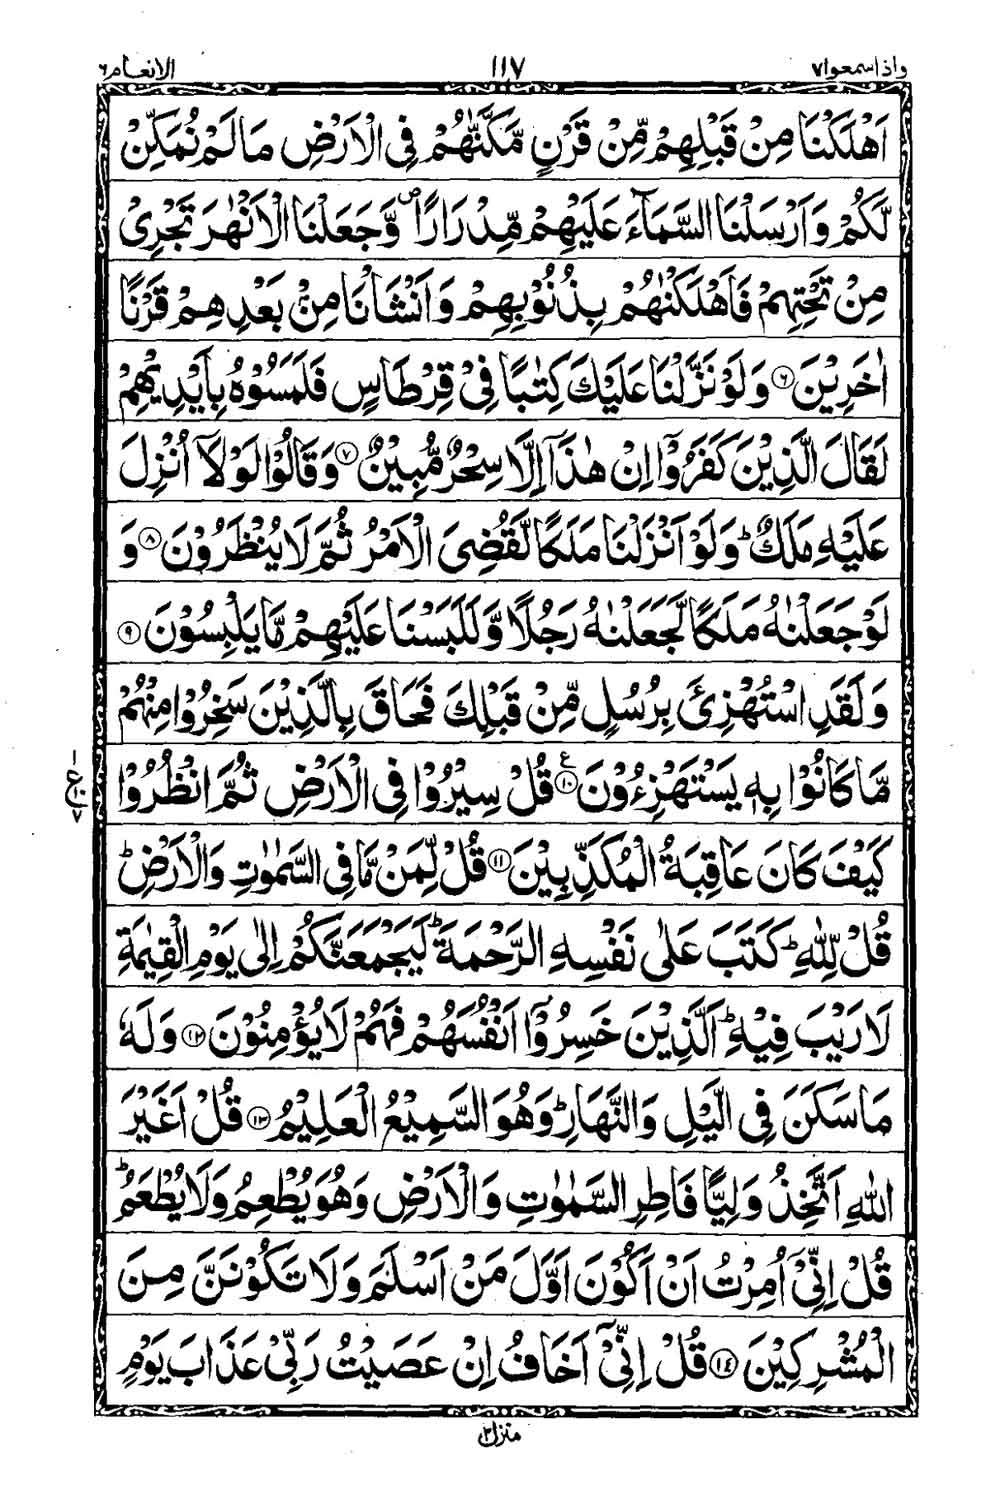 واذاسمعوا۷ ۱۱۷ الانعام۶
اَهْلَكْنَا مِنْ قَبْلِهِمْ مِّنْ قَرْنٍ مَّكَّنّٰهُمْ فِی الْاَرْضِ مَا لَمْ نُمَكِّنْ
لَّكُمْ وَاَرْسَلْنَا السَّمَآءَ عَلَیْهِمْ مِّدْرَارًا۪ وَّجَعَلْنَا الْاَنْهٰرَ تَجْرِیْ
مِنْ تَحْتِهِمْ فَاَهْلَكْنٰهُمْ بِذُنُوْبِهِمْ وَاَنْشَاْنَا مِنْۢ بَعْدِهِمْ قَرْنًا
اٰخَرِیْنَ ۶ وَلَوْ نَزَّلْنَا عَلَیْكَ كِتٰبًا فِیْ قِرْطَاسٍ فَلَمَسُوْهُ بِاَیْدِیْهِمْ
لَقَالَ الَّذِیْنَ كَفَرُوْۤا اِنْ هٰذَاۤ اِلَّا سِحْرٌ مُّبِیْنٌ ۷ وَقَالُوْا لَوْلَاۤ اُنْزِلَ
عَلَیْهِ مَلَكٌ ؕ وَلَوْ اَنْزَلْنَا مَلَكًا لَّقُضِیَ الْاَمْرُ ثُمَّ لَا یُنْظَرُوْنَ ۸ وَ
لَوْ جَعَلْنٰهُ مَلَكًا لَّجَعَلْنٰهُ رَجُلًا وَّلَلَبَسْنَا عَلَیْهِمْ مَّا یَلْبِسُوْنَ ۹
وَلَقَدِ اسْتُهْزِئَ بِرُسُلٍ مِّنْ قَبْلِكَ فَحَاقَ بِالَّذِیْنَ سَخِرُوْا مِنْهُمْ
مَّا كَانُوْا بِهٖ یَسْتَهْزِءُوْنَ ۱۰ ع قُلْ سِیْرُوْا فِی الْاَرْضِ ثُمَّ انْظُرُوْا
كَیْفَ كَانَ عَاقِبَةُ الْمُكَذِّبِیْنَ ۱۱ قُلْ لِّمَنْ مَّا فِی السَّمٰوٰتِ وَالْاَرْضِ ؕ
قُلْ لِّلّٰهِ ؕ كَتَبَ عَلٰی نَفْسِهِ الرَّحْمَةَ ؕ لَیَجْمَعَنَّكُمْ اِلٰی یَوْمِ الْقِیٰمَةِ
لَا رَیْبَ فِیْهِ ؕ اَلَّذِیْنَ خَسِرُوْۤا اَنْفُسَهُمْ فَهُمْ لَا یُؤْمِنُوْنَ ۱۲ وَلَهٗ
مَا سَكَنَ فِی الَّیْلِ وَالنَّهَارِ ؕ وَهُوَ السَّمِیْعُ الْعَلِیْمُ ۱۳ قُلْ اَغَیْرَ
اللّٰهِ اَتَّخِذُ وَلِیًّا فَاطِرِ السَّمٰوٰتِ وَالْاَرْضِ وَهُوَ یُطْعِمُ وَلَا یُطْعَمُ ؕ
قُلْ اِنِّیْۤ اُمِرْتُ اَنْ اَكُوْنَ اَوَّلَ مَنْ اَسْلَمَ وَلَا تَكُوْنَنَّ مِنَ
الْمُشْرِكِیْنَ ۱٤ قُلْ اِنِّیْۤ اَخَافُ اِنْ عَصَیْتُ رَبِّیْ عَذَابَ یَوْمٍ
منزل۲